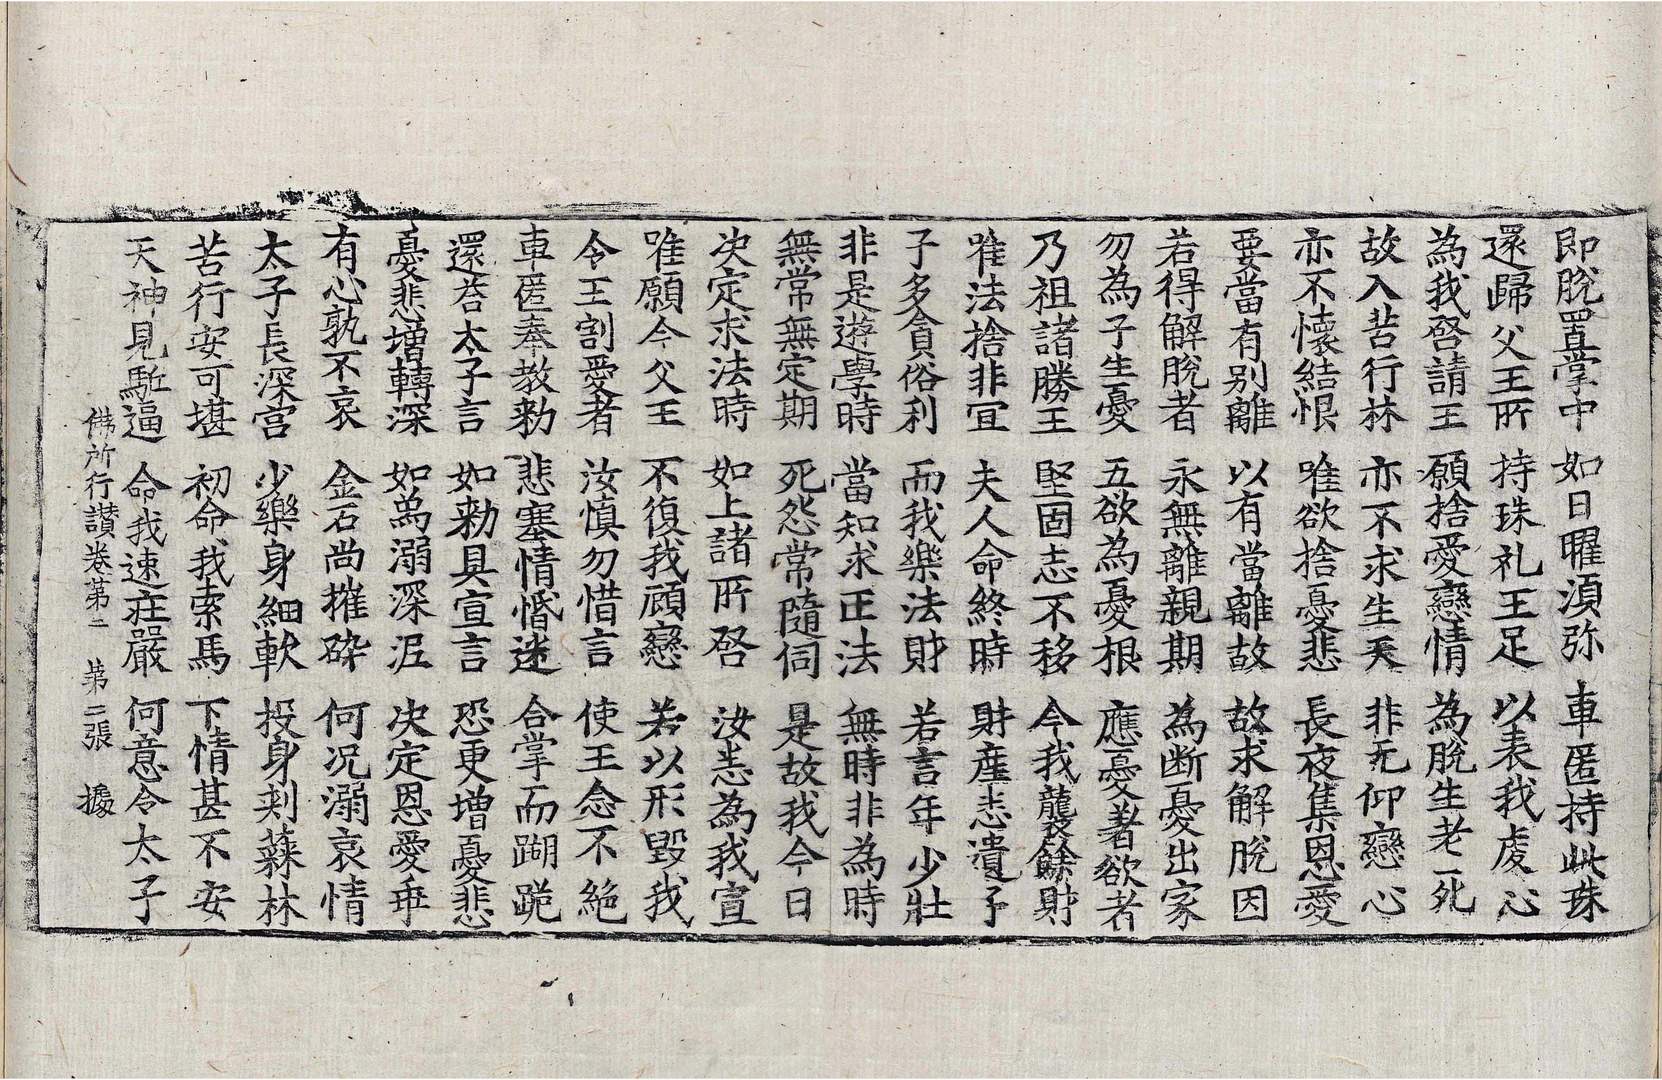 即脫置掌中 如日曜湏弥 車匿持此珠
還歸父王所 持珠礼王足 以表我䖍心
為我啓請王 願捨愛戀情 為脫生老死
故入苦行林 亦不求生天 非无仰戀心
亦不懷結恨 唯欲捨憂悲 長夜集恩愛
要當有別離 以有當離故 故求解脫因
若得解脫者 永無離親期 為断憂出家
勿為子生憂 五欲為憂根 應憂著欲者
乃祖諸勝王 堅固志不移 今我襲餘財
唯法捨非宜 夫人命終時 財產悉遺子
子多貪俗利 而我樂法財 若言年少壯
非是遊學時 當知求正法 無時非為時
無常無定期 死怨常隨伺 是故我今日
決定求法時 如上諸所啓 汝悉為我宣
唯願今父王 不復我顧戀 若以形毀我
令王割愛者 汝慎勿惜言 使王念不絕
車匿奉教勑 悲塞情惛迷 合掌而䠒跪
還荅太子言 如勑具宣言 恐更增憂悲
憂悲增轉深 如爲溺深泥 決定恩愛乖
有心孰不哀 金石尚摧碎 何況溺哀情
太子長深宮 少樂身細軟 投身刺蕀林
苦行安可堪 初命我索馬 下情甚不安
天神見駈逼 命我速莊嚴 何意令太子
佛所行讃卷第二 第二張 據